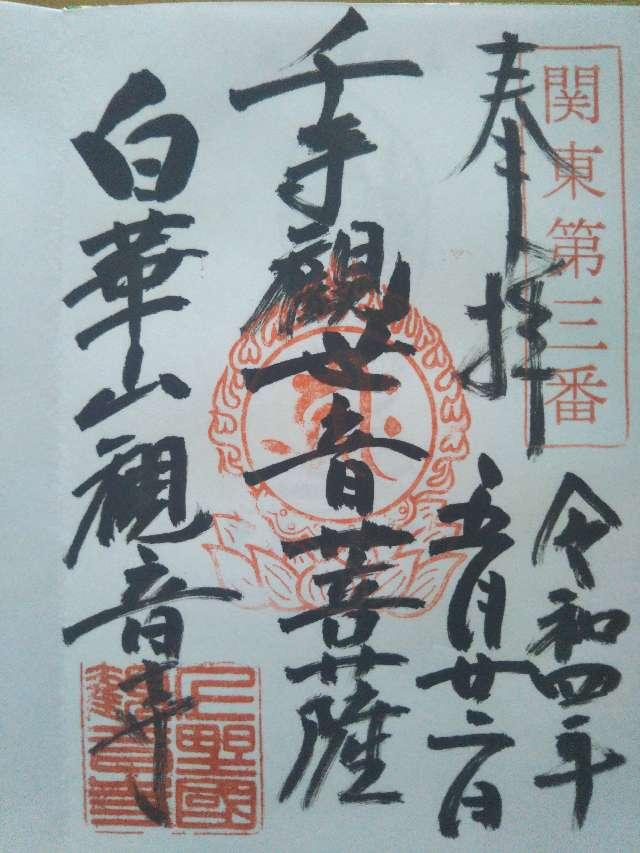 関東第三番
奉拝
令和四年
五月廿二日
千手観世音菩薩
白華山観音寺